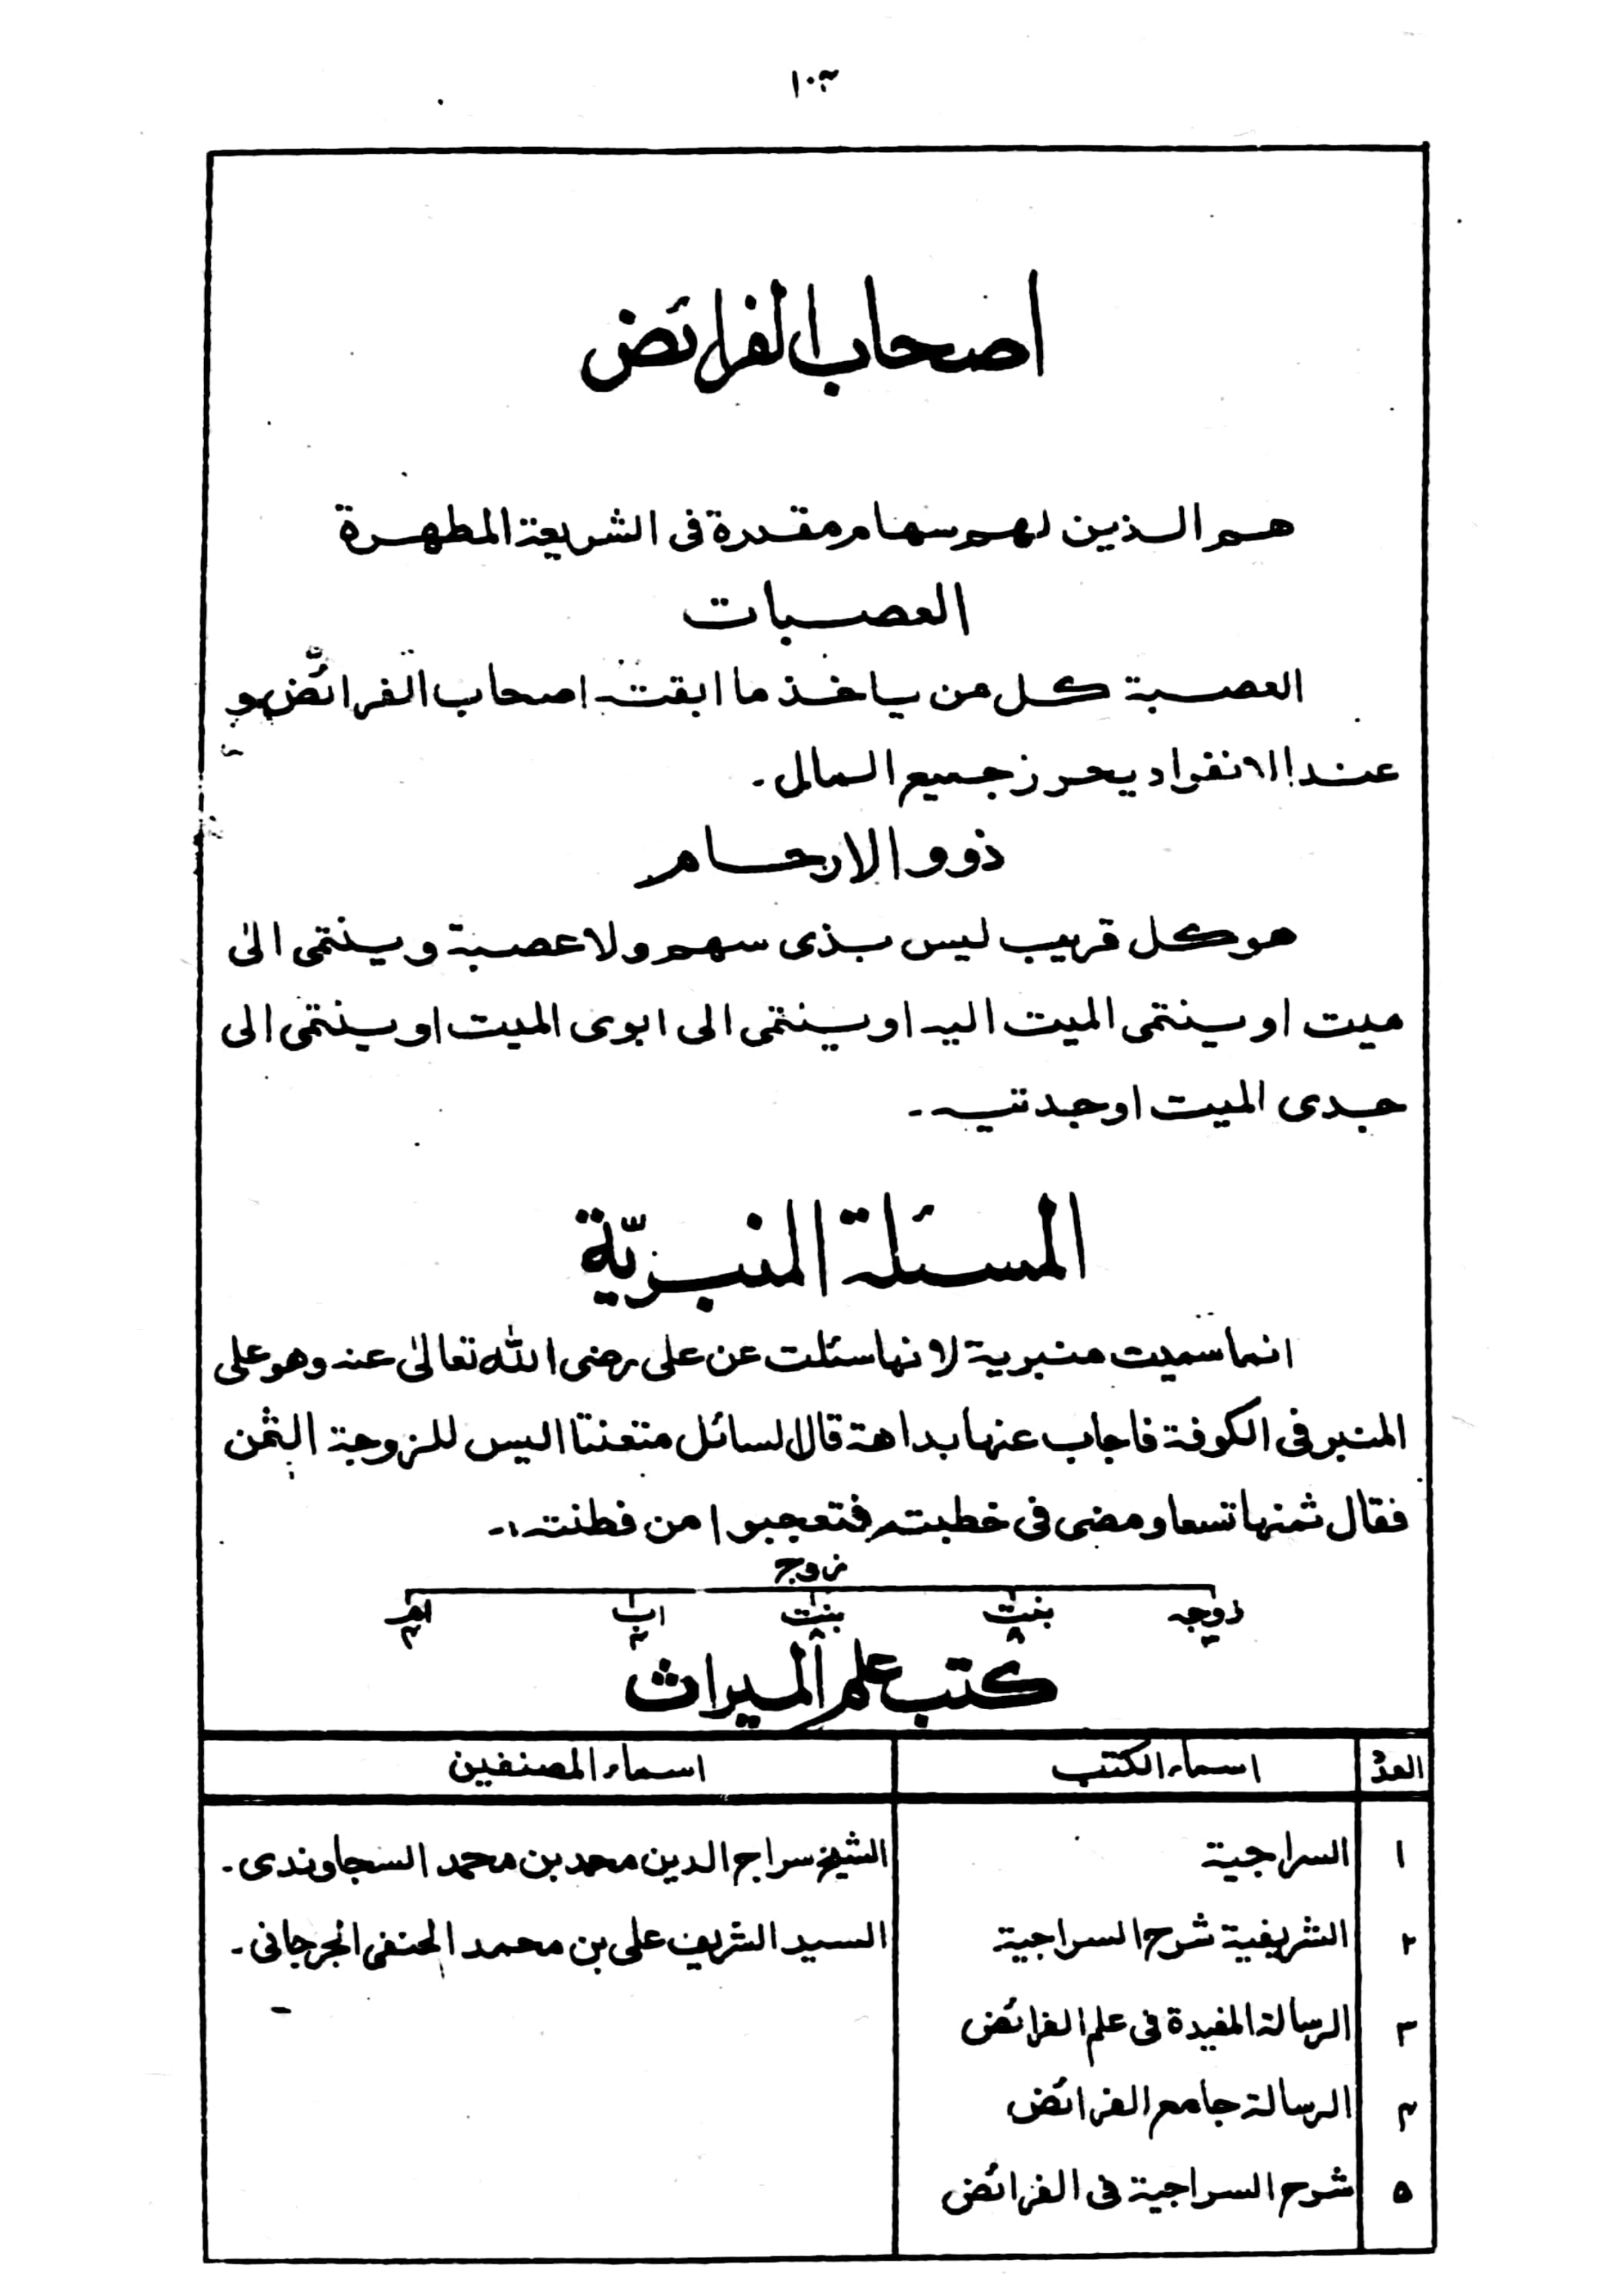 ۱۰۳
اصحاب الفرائض
هم الذين لهم سهام مقدرة فى الشريعة المطهرة
العصبات
العصبة كل من ياخذ ما ابقته اصحاب الفرائض و
عند الانفراد يحرز جميع المال ۔
ذوو الارحام
هو كل قريب ليس بذى سهم ولا عصبة وينتمى الىٰ
ميت او ينتمى الميت اليه او ينتمى الى ابوى الميت او ينتمى الى
جدى الميت او جدتيه ۔
المسئلة المنبريّة
انما سميت منبرية لانها سئلت عن على رضى الله تعالىٰ عنه وهو على
المنبر فى الكوفة فاجاب عنها بداهة قال السائل متعنتا اليس للزوجة الثمن
فقال ثمنها تسعا ومضى فى خطبته فتعجبوا من فطنته ۔
زوج
زوجه بنت بنت اب ام
۳ ۸ ۸ ۴ ۴
كتب علم الميراث
العدد اسماء الكتب اسماء المصنفين
۱ السراجية الشيخ سراج الدين محمد بن محمد السجاوندى ۔
۲ الشريفية شرح السراجية السيد الشريف على بن محمد الحنفى الجرجانى ۔
۳ الرسالة المفيدة فى علم الفرائض
۴ الرسالة جامع الفرائض
۵ شرح السراجية فى الفرائض